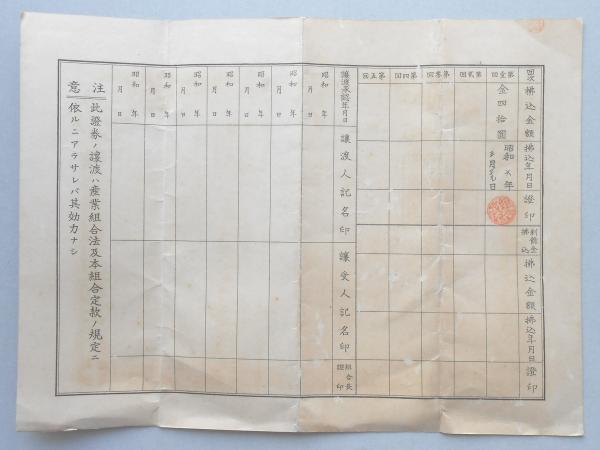 回次
拂込金額
拂込年月日
證印
剰餘金拂込
拂込金額
拂込年月日
證印
第壹回
金四拾圓
昭和 年 月 日
第貳回
第參回
第四回
第五回
讓渡承認年月日
讓渡人記名印
讓受人記名印
組合長證印
昭和 年 月 日
昭和 年 月 日
昭和 年 月 日
昭和 年 月 日
昭和 年 月 日
昭和 年 月 日
昭和 年 月 日
注意
此證券ノ讓渡ハ産業組合法及本組合定款ノ規定ニ
依ルニアラサレバ其効力ナシ